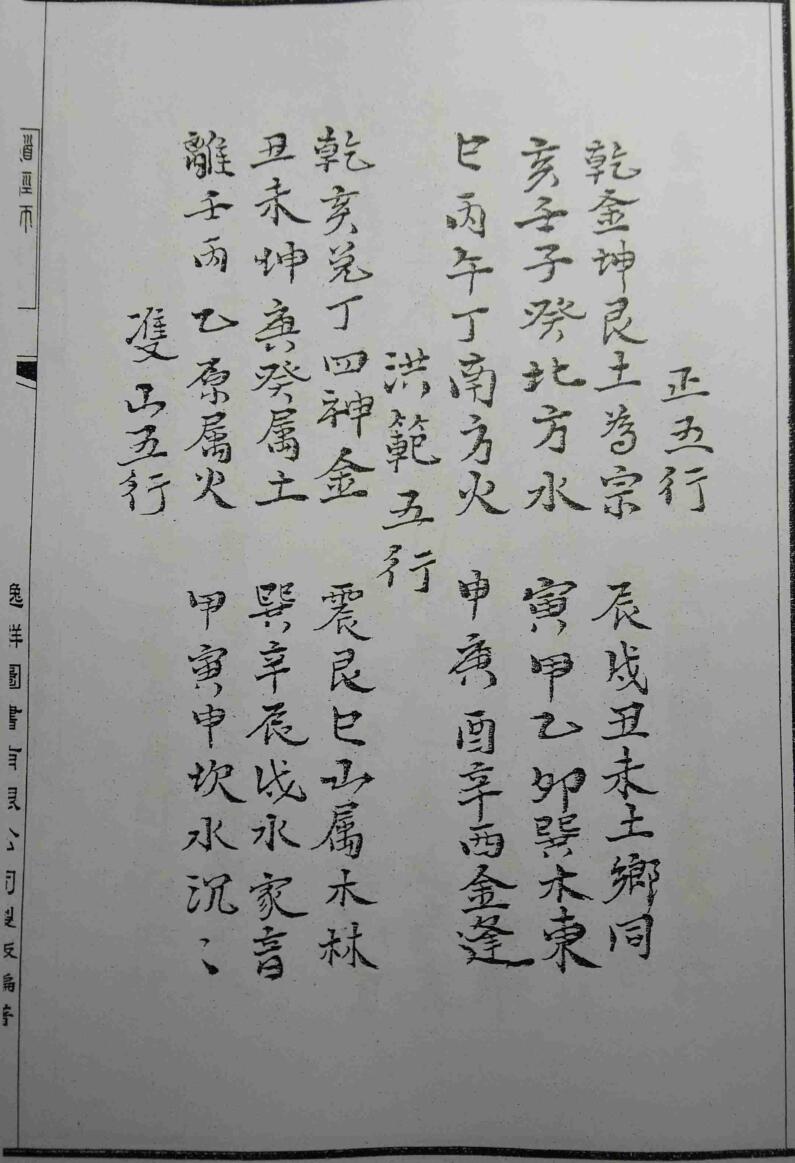 正五行
乾金坤艮土為宗　辰戌丑未土鄉同
亥壬子癸北方水　寅甲乙卯巽木東
巳丙午丁南方火　申庚酉辛西金逢
洪範五行
乾亥兌丁四神金　震艮巳山属木林
丑未坤庚癸属土　巽辛辰戌水家音
離壬丙乙原属火　甲寅申坎水沉〻
雙山五行
逸群圖書有限公司製版